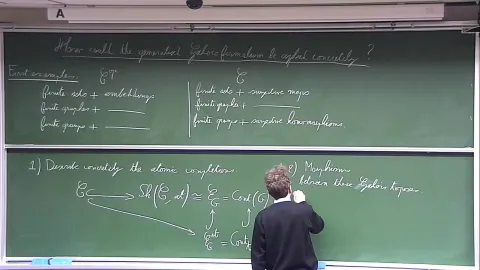 A
How could the generalized Galois formalism be applied concretely ?
First examples. ℰT
finite sets + embeddings
finite graphs + ———
finite groups + ———
ℰ
finite sets + surjective maps
finite graphs + ———
finite groups + surjective homomorphisms.
1) Describe concretely the atomic completions.
Sh(ℰ, at) ≅
= Cont(G)
= Cont
2) Morphisms
between these Galois toposes